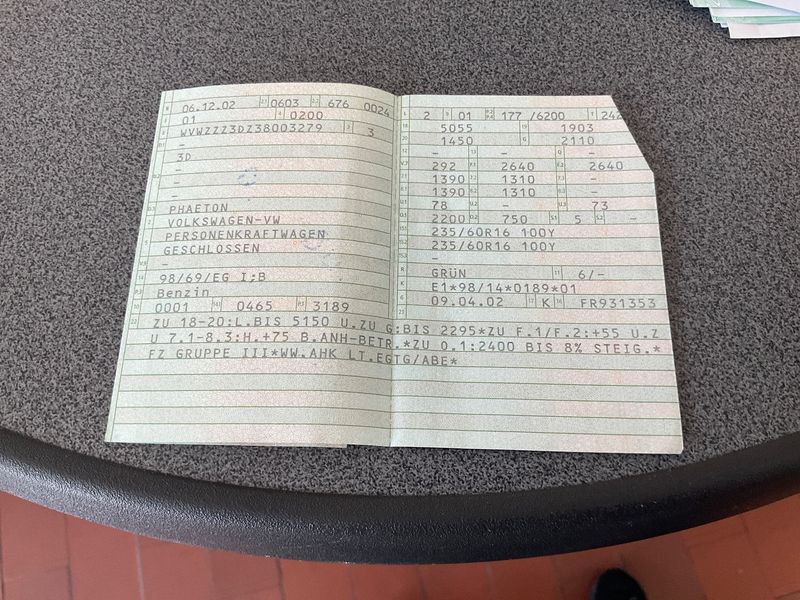 06.12.02 0603 676 0024
01 0200
WVWZZZ3DZ38003279 3
-
3D
-
-
-
PHAETON
VOLKSWAGEN-VW
PERSONENKRAFTWAGEN
GESCHLOSSEN
-
98/69/EG I;B
Benzin
0001 0465 3189
2 01 177 /6200 242
5055 1903
1450 2110
- - -
292 2640 2640
1390 1310 -
1390 1310 -
78 - 73
2200 750 5 -
235/60R16 100Y
235/60R16 100Y
-
GRÜN 6/-
E1*98/14*0189*01
09.04.02 K FR931353
ZU 18-20:L.BIS 5150 U.ZU G:BIS 2295*ZU F.1/F.2:+55 U.Z
U 7.1-8.3:H.+75 B.ANH-BETR.*ZU 0.1:2400 BIS 8% STEIG.*
FZ GRUPPE III*WW.AHK LT.EGTG/ABE*